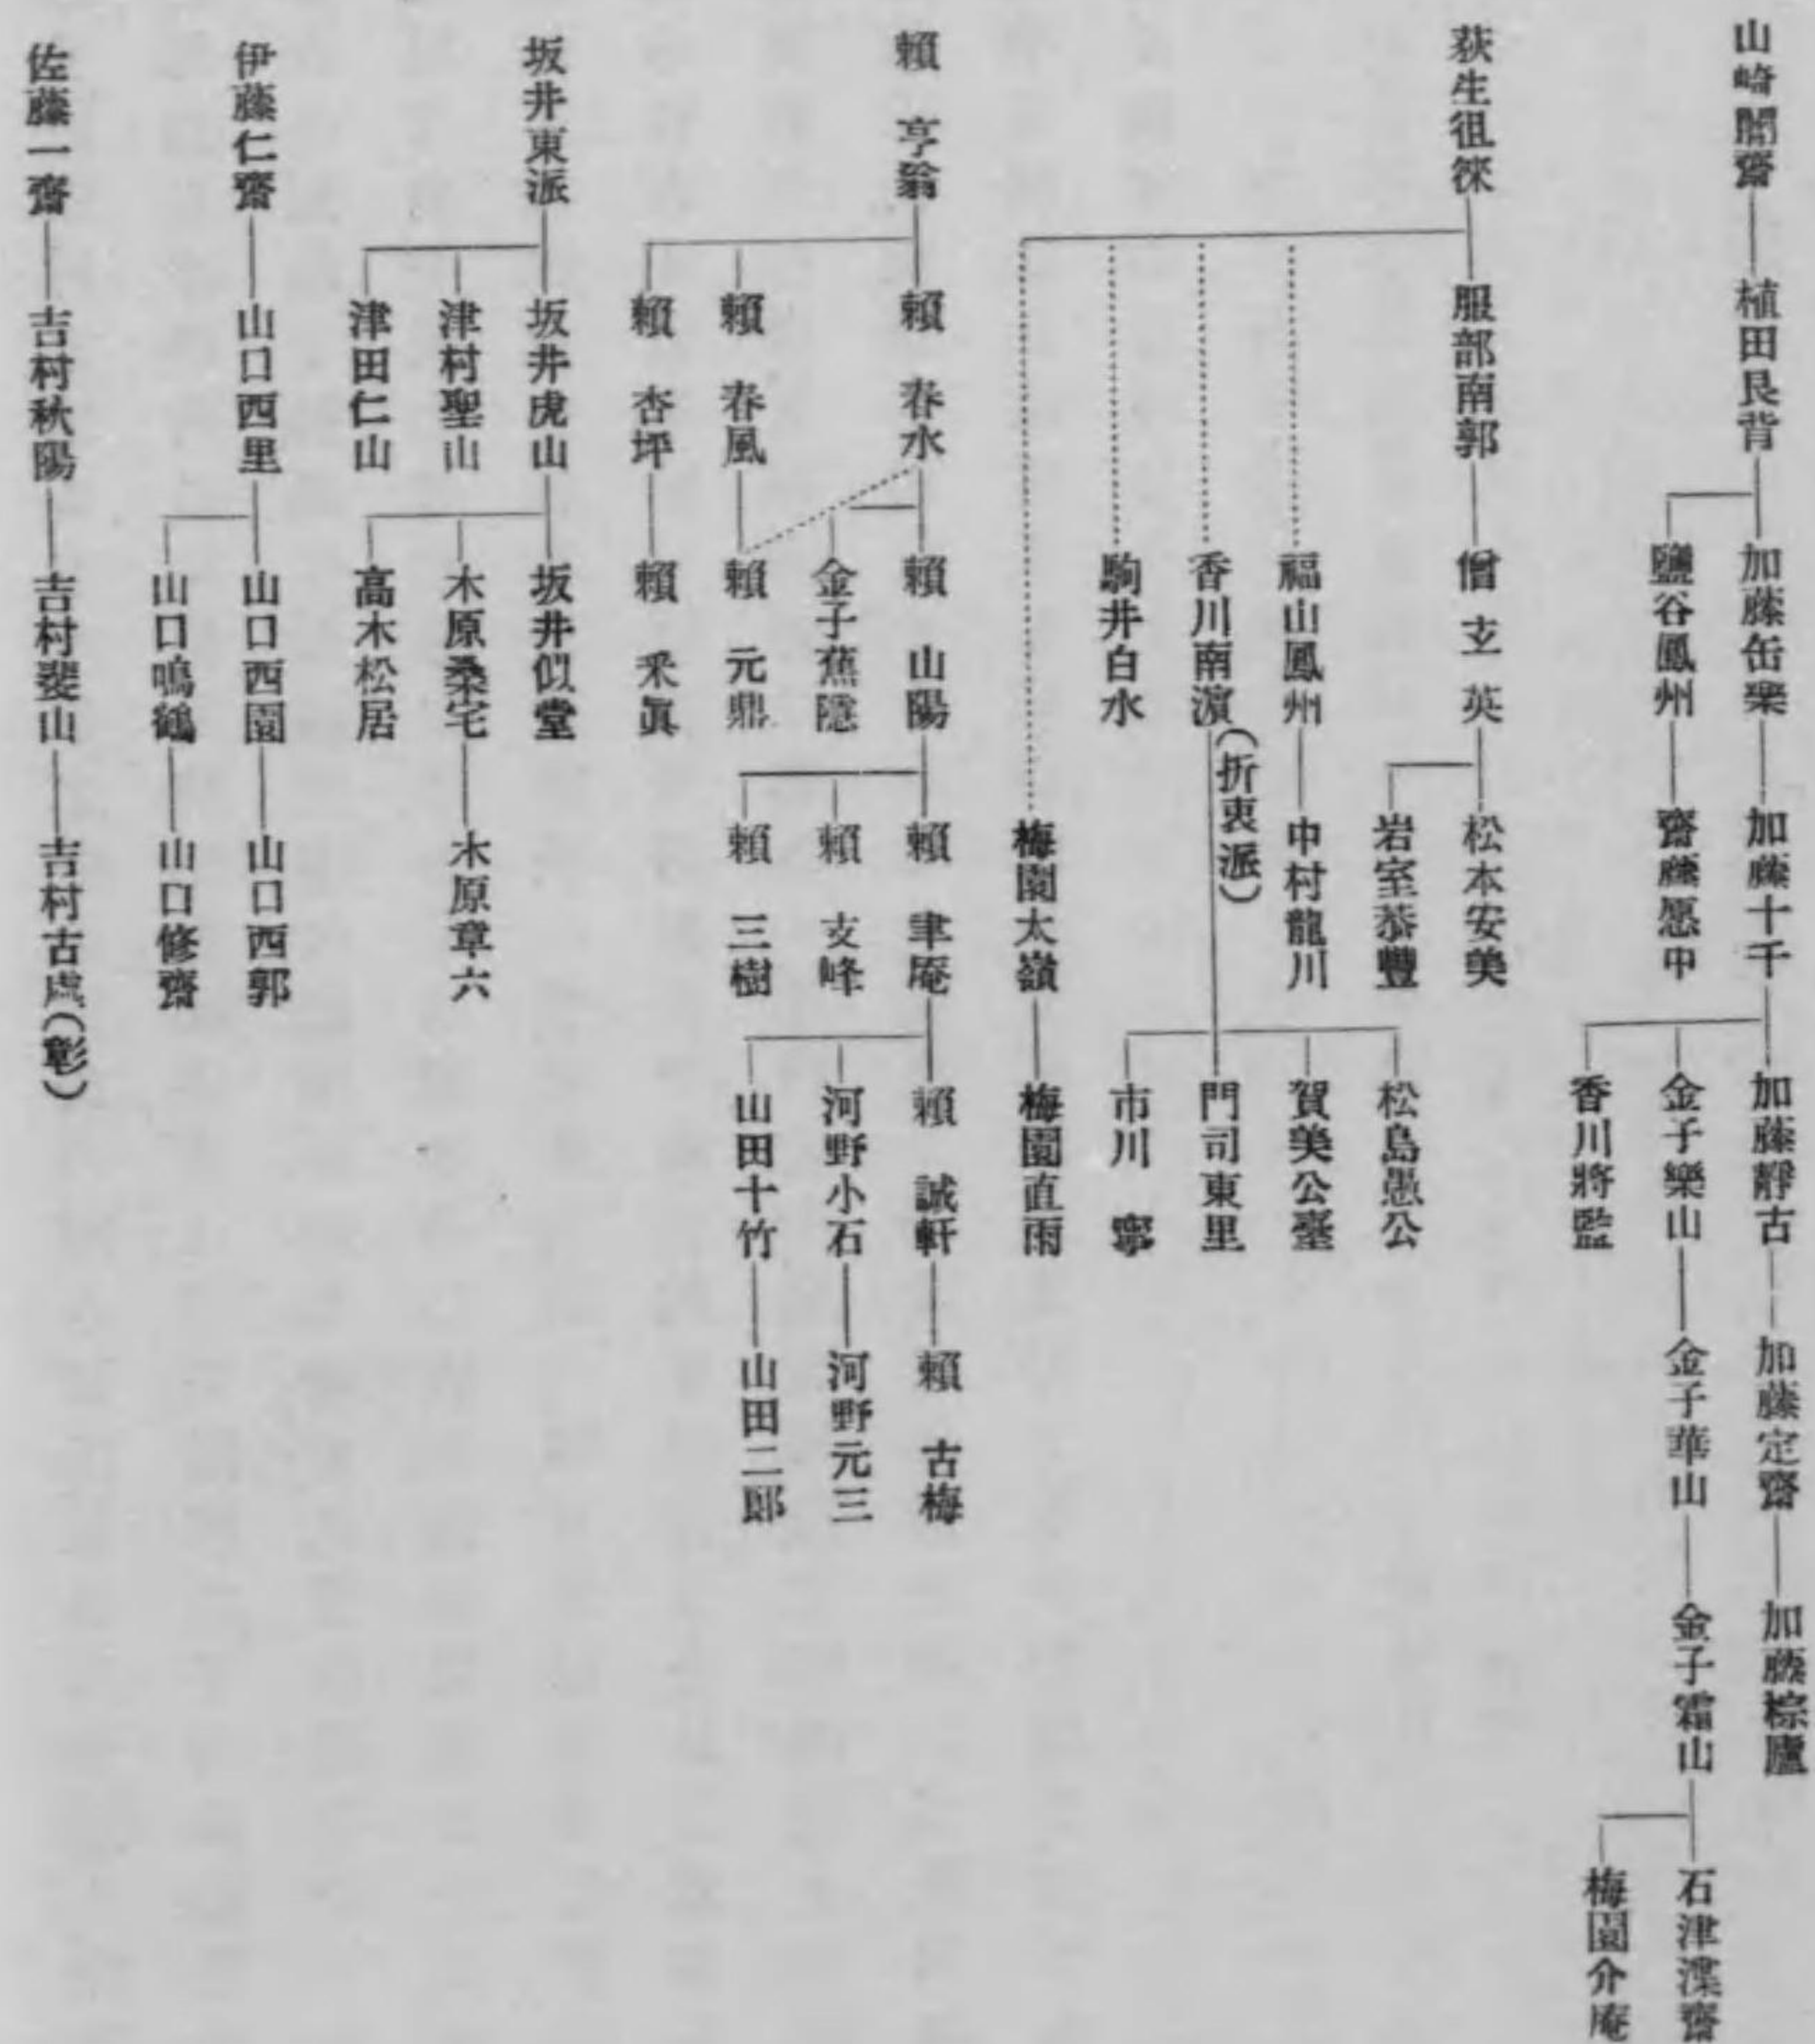 山崎闇齋
植田艮背
加藤缶樂
加藤十千
加藤靜古
加藤定齋
加藤棕廬
金子樂山
金子華山
金子霜山
石津渫齋
梅園介庵
香川將監
鹽谷鳳州
齋藤愿中
荻生徂徠
服部南郭
僧玄英
松本安美
岩室恭豐
福山鳳州
中村龍川
香川南濵(折衷派)
松島愚公
賀美公臺
門司東里
市川寧
駒井白水
梅園太嶺
梅園直雨
賴亨翁
賴春水
賴山陽
賴聿庵
賴誠軒
賴古梅
河野小石
河野元三
山田十竹
山田二郎
賴支峰
賴三樹
金子蕉隱
賴春風
賴元鼎
賴杏坪
賴采眞
坂井東派
坂井虎山
坂井似堂
木原桑宅
木原章六
高木松居
津村聖山
津田仁山
伊藤仁齋
山口西里
山口西園
山口西郭
山口鳴鶴
山口修齋
佐藤一齋
吉村秋陽
吉村斐山
吉村古處(彰)